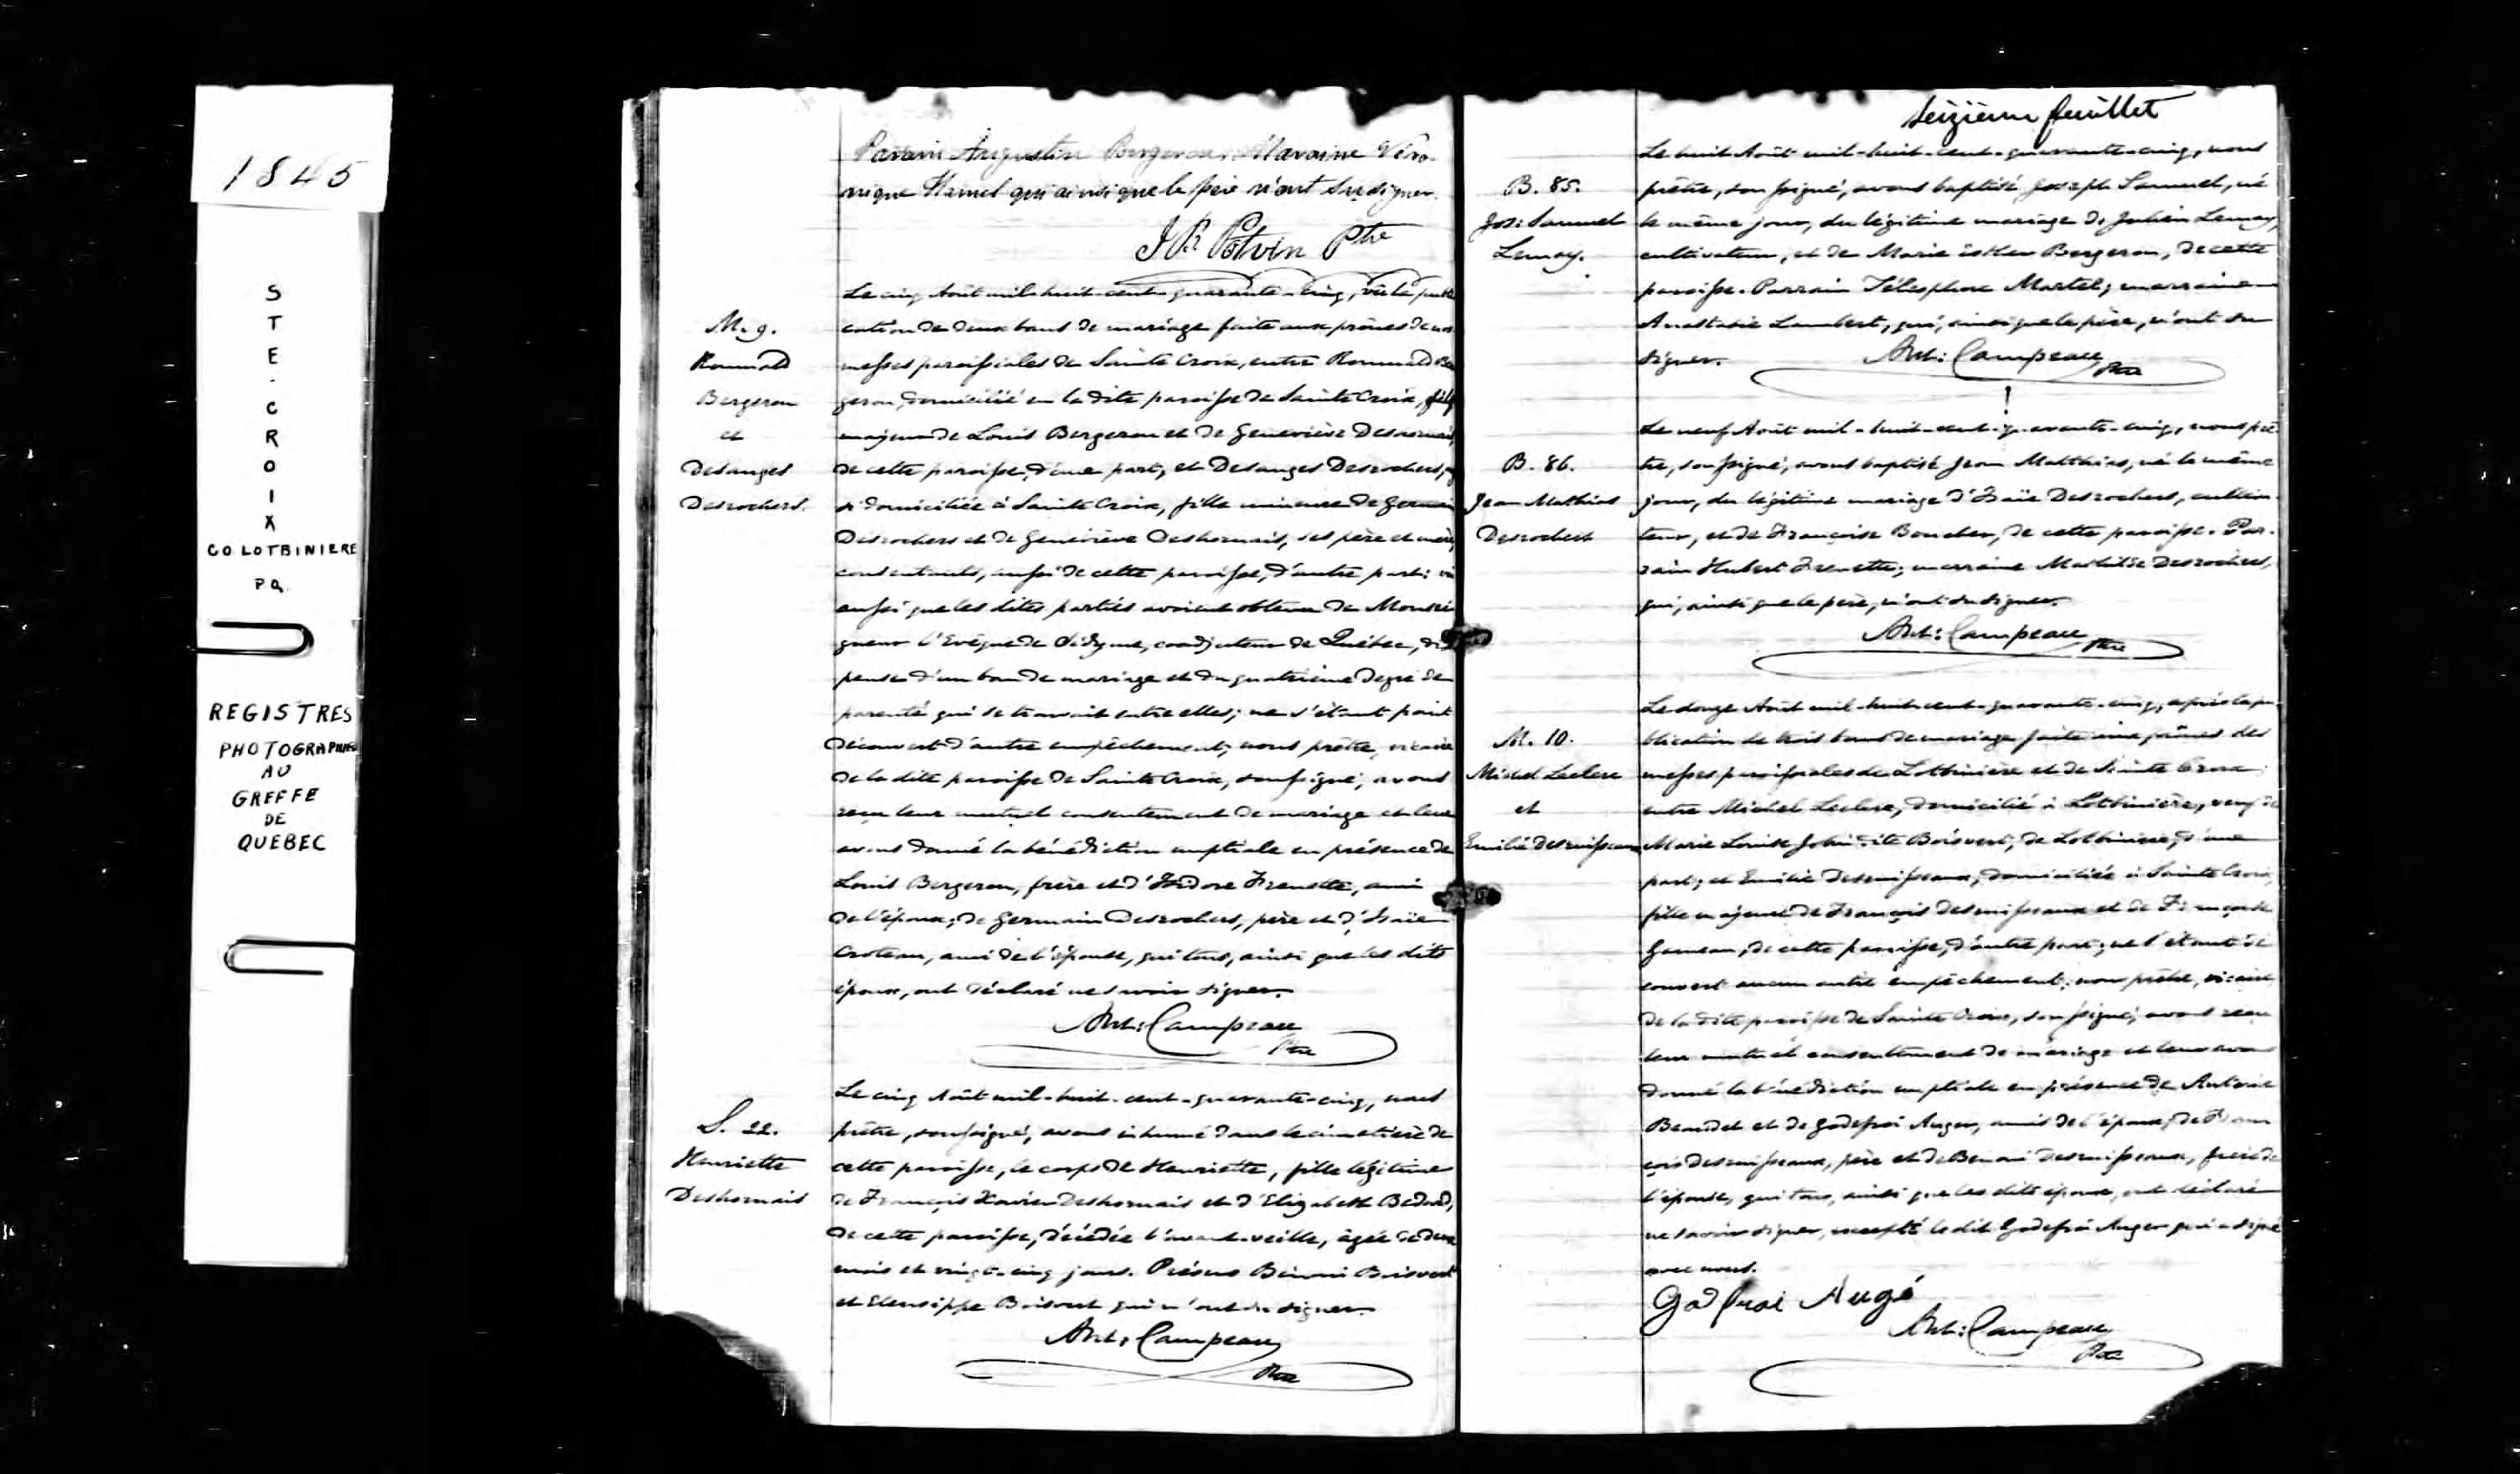 1845
S
T
E.
C
R
O
I
X
CO. LOTBINIERE
P Q.
REGISTRES
PHOTOGRAPHIÉS
AU
GREFFE
DE
QUEBEC
Parain Augustin Bergeron, Maraine Véro-
nique Hamel qui ainsi que le père n'ont su signer.
J Bt Potvin Ptre
M. 9.
Romuald
Bergeron
et
Desanges
Desrochers.
Le cinq Août mil-huit-cent-quarante-cinq, vu la publi
cation de deux bans de mariage faite aux prônes de nos
messes paroissiales de Sainte Croix, entre Romuald Ber
geron, domicilié en la dite paroisse de Sainte Croix, fils
majeur de Louis Bergeron et de Geneviève
de cette paroisse, d'une part, et Desanges Desrochers,
si domiciliée à Sainte Croix, fille mineure de Germain
Desrochers et de Geneviève Deshornais, ses père et mère,
consentants, aussi de cette paroisse, d'autre part: vu
aussi que les dites parties avoient obtenu de Monsei
gneur l'Evêque de Sidyme, coadjuteur de Québec, dis
pense d'un ban de mariage et du quatrième degré de
parenté qui se trouvait entre elles; ne s'étant point
découvert d'autre empêchement; nous prêtre, vicaire
de la dite paroisse de Sainte Croix, soussigné, avons
reçu leur mutuel consentement de mariage et leur
avons donné la bénédiction nuptiale en présence de
Louis Bergeron, frère et d'Isidore Frenette, ami
de l'époux; de Germain Desrochers, père et d'Isaïe
Croteau, ami de l'épouse, qui tous, ainsi que les dits
époux, ont déclaré ne savoir signer.
Ant: Campeau
Ptre
S. 22.
Henriette
Deshornais
Le cinq Août mil-huit-cent-quarante-cinq, nous
prêtre, soussigné, avons inhumé dans le cimetière de
cette paroisse, le corps de Henriette, fille légitime
de François Xavier Deshornais et d'Elizabeth Bedard,
de cette paroisse, décédée l'avant-veille, âgée de deux
mois et vingt-cinq jours. Présens Bénoni Boisvert
et Eleusippe Boisvert qui n'ont su signer.
Ant: Campeau
Ptre
Seizième feuillet
B. 85.
Jos: Samuel
Lemay.
Le huit Août mil-huit-cent-quarante-cinq, nous
prêtre, soussigné, avons baptisé Joseph Samuel, né
le même jour, du légitime mariage de Julien Lemay,
cultivateur, et de Marie Esther Bergeron, de cette
paroisse. Parrain Télesphore Martel; marraine
Anastasie Lambert, qui, ainsi que le père, n'ont su
signer.
Ant: Campeau
Ptre
B. 86.
Jean Mathias
Desrochers
Le neuf Août mil-huit-cent-quarante-cinq, nous prê
tre, soussigné, avons baptisé Jean Matthias, né le même
jour, du légitime mariage d'Isaïe Desrochers, cultiva
teur, et de Françoise Boucher, de cette paroisse. Par-
rain Hubert Frenette; marraine Mathilde Desrochers,
qui, ainsi que le père, n'ont su signer.
Ant: Campeau
Ptre
M. 10.
Michel Leclerc
et
Emilie Desruisseaux
Le douze Août mil-huit-cent-quarante-cinq, après la pu
blication de trois bans de mariage faite aux prônes des
messes paroissiales de Lotbinière et de Sainte Croix
entre Michel Leclerc, domicilié à Lotbinière, veuf de
Marie Louise Jobin dite Boisvert, de Lotbinière, d'une
part; et Emilie Desruisseaux, domiciliée à Sainte Croix,
fille majeure de François Desruisseaux et de Françoise
Garneau, de cette paroisse, d'autre part; ne s'étant dé
couvert aucun autre empêchement; nous prêtre, vicaire
de la dite paroisse de Sainte Croix, soussigné, avons reçu
leur mutuel consentement de mariage et leur avons
donné la bénédiction nuptiale en présence de Antoine
Beaudet et de Godefroi Auger, amis de l'époux; de Fran
çois Desruisseaux, père et de Benoni Desruisseaux, frère de
l'épouse, qui tous, ainsi que les dits époux, ont déclaré
ne savoir signer, excepté le dit Godefroi Auger qui a signé
avec nous.
Godfroi Augé
Ant: Campeau
Ptre